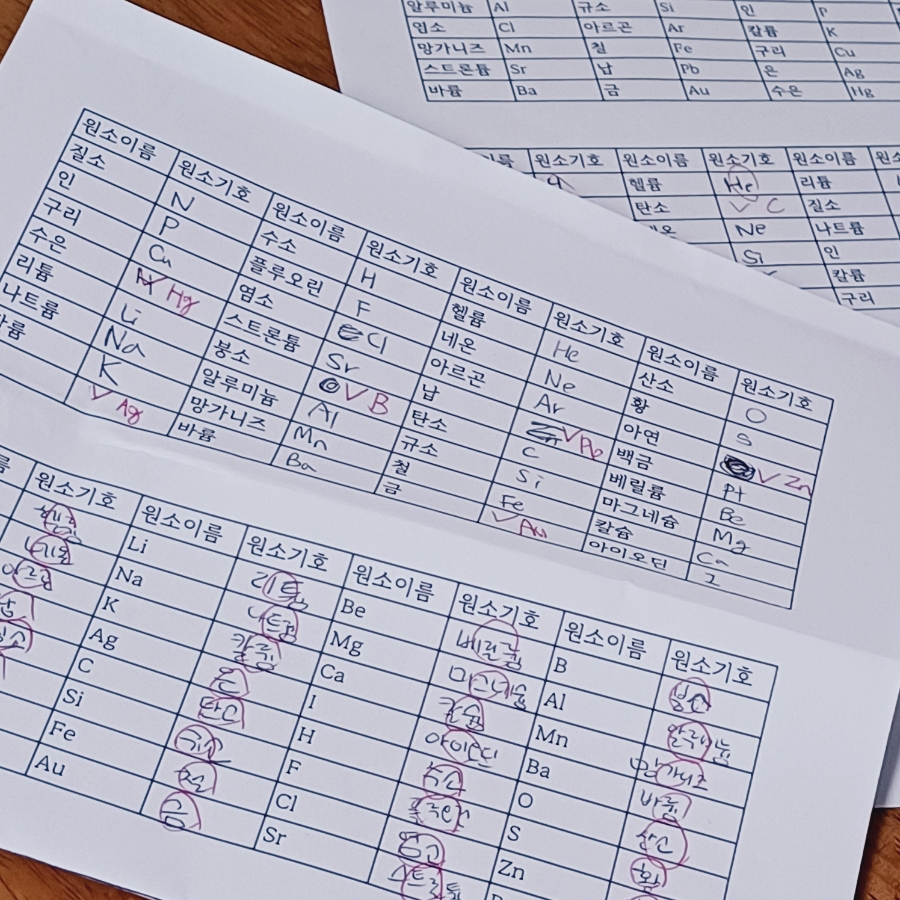 알루미늄 Al 규소 Si 인 P
염소 Cl 아르곤 Ar 칼륨 K
망가니즈 Mn 철 Fe 구리 Cu
스트론튬 Sr 납 Pb 은 Ag
바륨 Ba 금 Au 수은 Hg
원소기호 원소이름 원소기호 원소이름
헬륨 He 리튬
탄소 V C 질소
Ne 나트륨
Si 인
칼륨
구리
원소이름 원소기호 원소이름 원소기호 원소이름 원소기호 원소이름 원소기호
질소 N 수소 H 헬륨 He 산소 O
인 P 플루오린 F 네온 Ne 황 S
구리 Cu 염소 Cl 아르곤 Ar 아연 V Zn
수은 V Hg 스트론튬 Sr 납 V Pb 백금 Pt
리튬 Li 붕소 V B 탄소 C 베릴륨 Be
나트륨 Na 알루미늄 Al 규소 Si 마그네슘 Mg
K 망가니즈 Mn 철 Fe 칼슘 Ca
V Ag 바륨 Ba 금 V Au 아이오딘 I
원소기호 원소이름 원소기호 원소이름 원소기호 원소이름 원소기호
헬륨 Li 리튬 Be 베릴륨 B 붕소
네온 Na 나트륨 Mg 마그네슘 Al 알루미늄
아르곤 K 칼륨 Ca 칼슘 Mn 망가니즈
납 Ag 은 I 아이오딘 Ba 바륨
C 탄소 H 수소 O 산소
Si 규소 F 플루오린 S 황
Fe 철 Cl 염소 Zn
Au 금 Sr 스트론튬